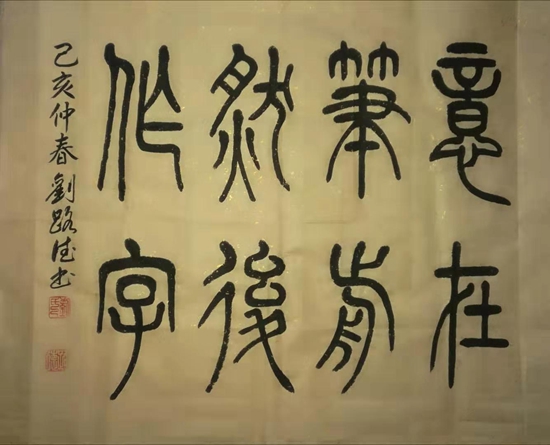 意在
筆前
然後
作字
己亥仲春劉路德书